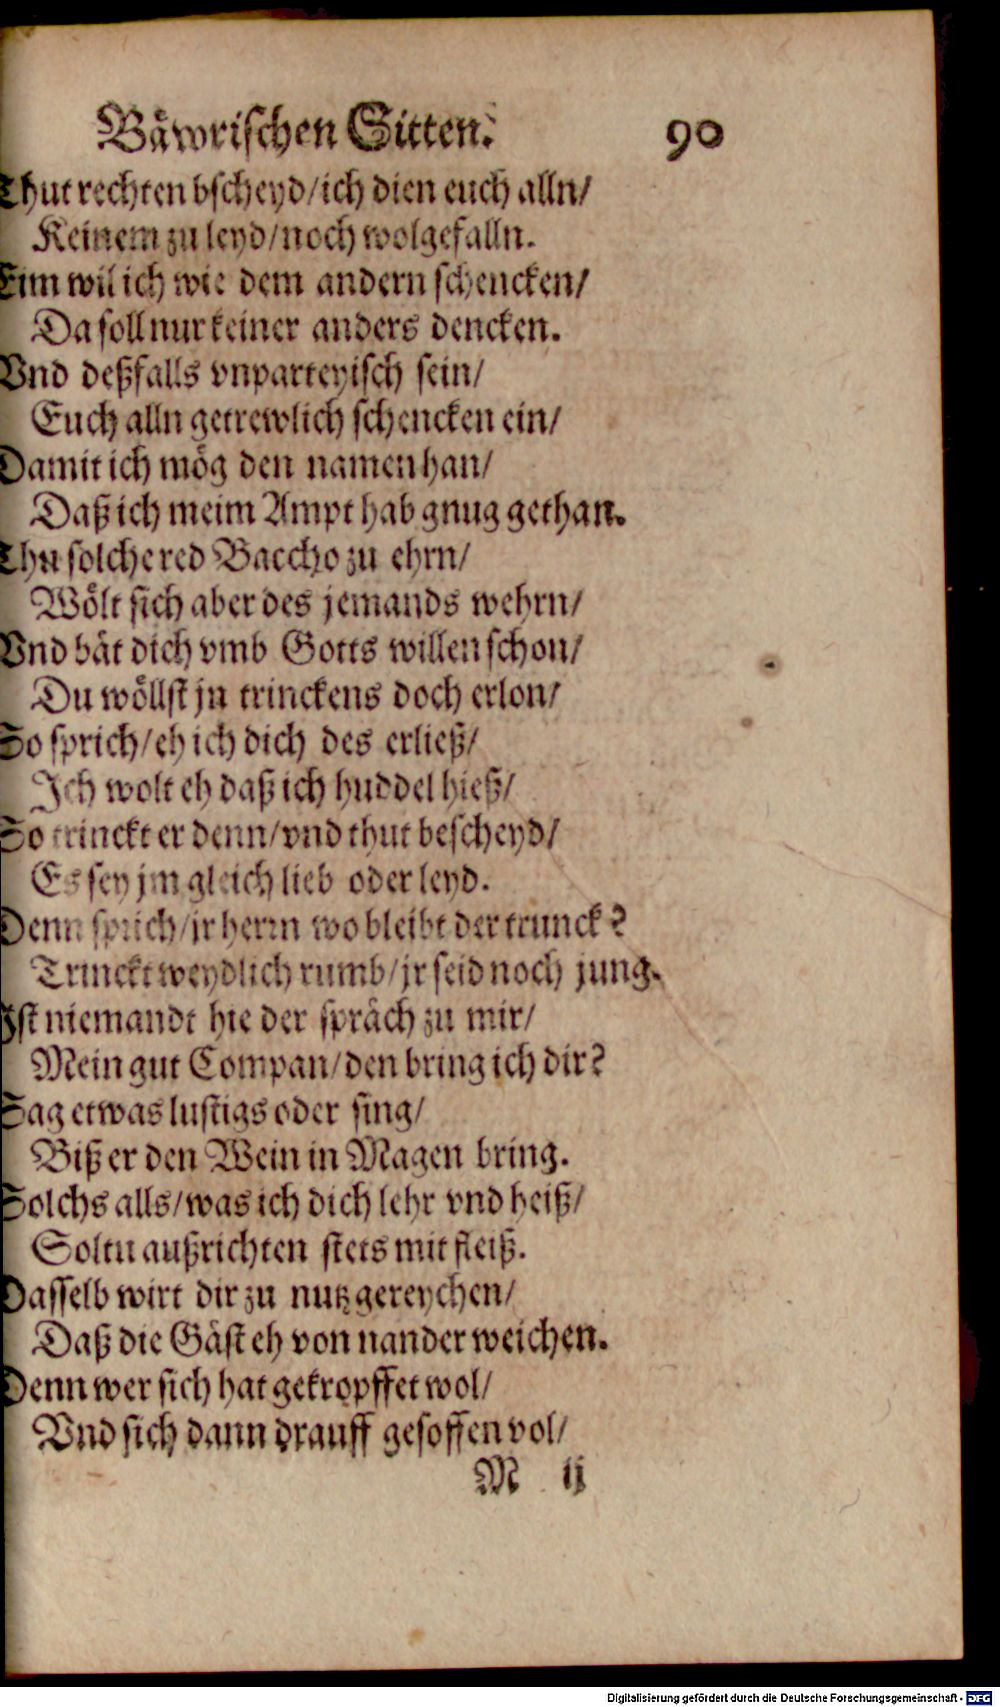 Bäwrischen Sitten. 90
Thut rechten bscheyd/ich dien euch alln/
Keinem zu leyd/noch wolgefalln.
Eim wil ich wie dem andern schencken/
Da soll nur keiner anders dencken.
Vnd deßfalls vnparteyisch sein/
Euch alln getrewlich schencken ein/
Damit ich mög den namen han/
Daß ich meim Ampt hab gnug gethan.
Thu solche red Baccho zu ehrn/
Wölt sich aber des jemands wehrn/
Vnd bät dich vmb Gotts willen schon/
Du wöllst jn trinckens doch erlon/
So sprich/eh ich dich des erließ/
Ich wolt eh daß ich huddel hieß/
So trinckt er denn/vnd thut bescheyd/
Es sey jm gleich lieb oder leyd.
Denn sprich/jr herrn wo bleibt der trunck?
Trinckt weydlich rumb/jr seid noch jung.
Ist niemandt hie der spräch zu mir/
Mein gut Compan/den bring ich dir?
Sag etwas lustigs oder sing/
Biß er den Wein in Magen bring.
Solchs alls/was ich dich lehr vnd heiß/
Soltu außrichten stets mit fleiß.
Dasselb wirt dir zu nutz gereychen/
Daß die Gäst eh von nander weichen.
Denn wer sich hat gekropffet wol/
Vnd sich dann drauff gesoffen vol/
M ij
Digitalisierung gefördert durch die Deutsche Forschungsgemeinschaft - DFG